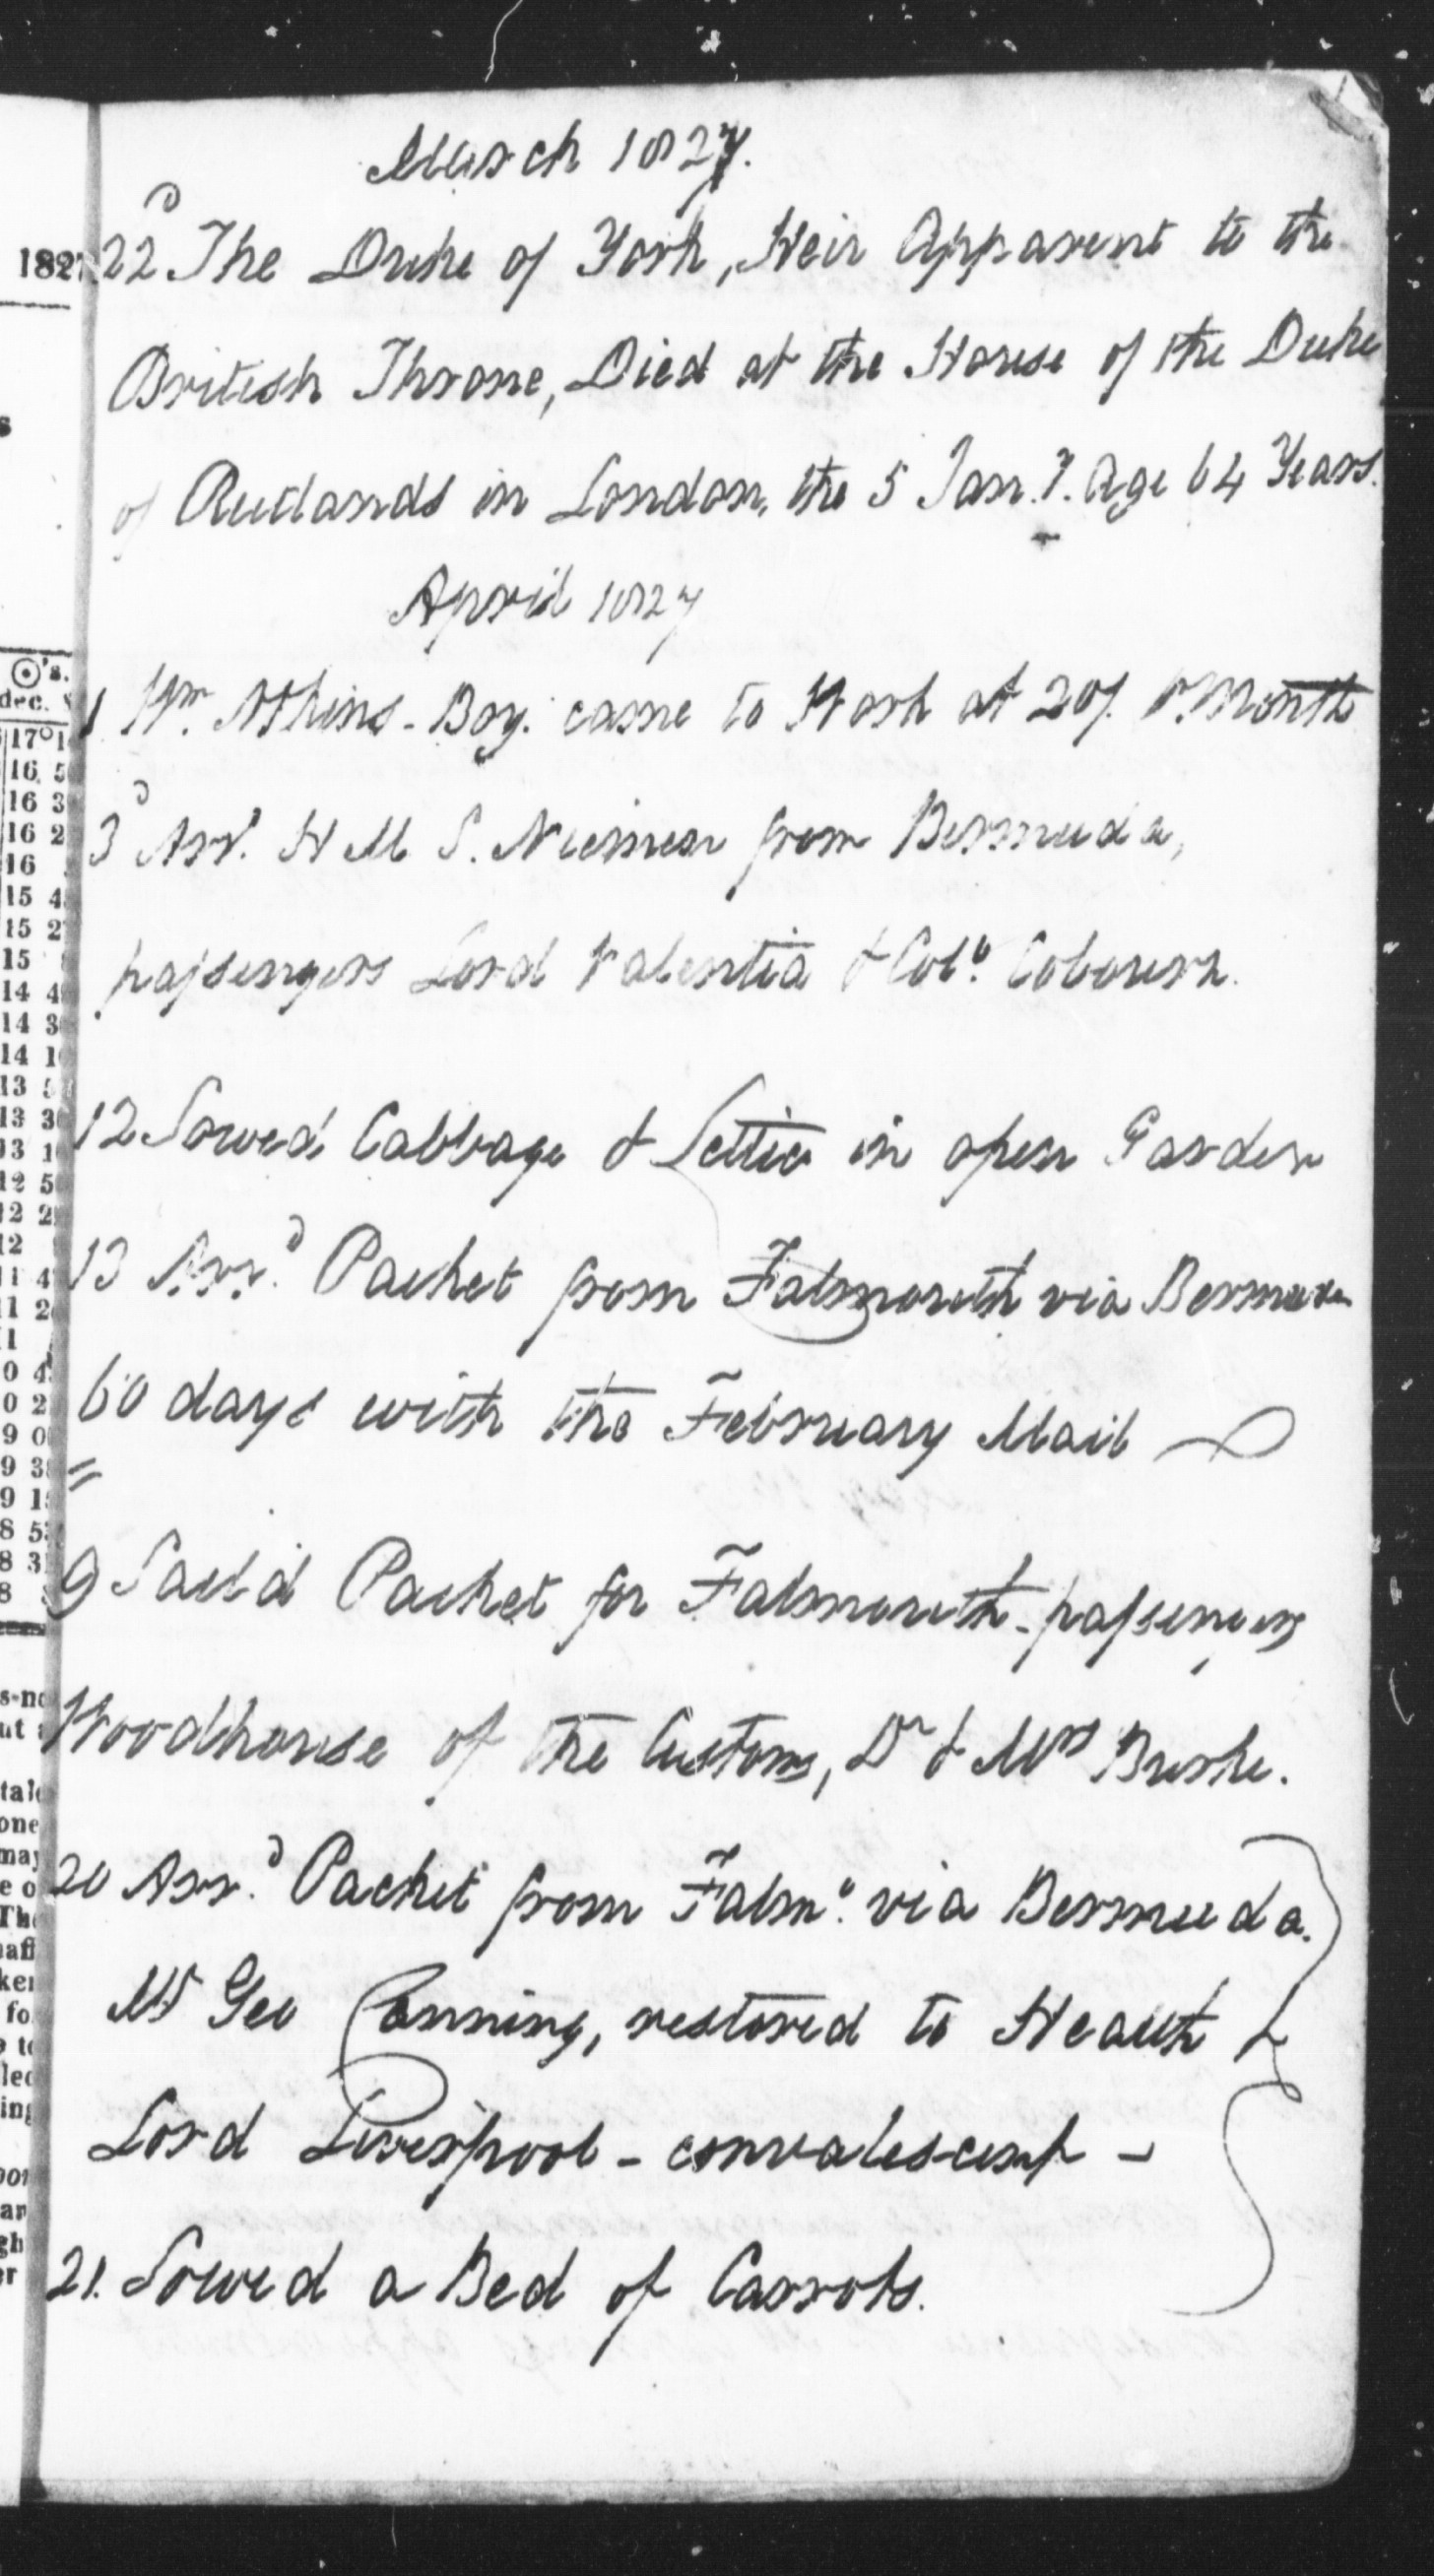 March 1827.
22d The Duke of York, Heir Apparent to the
British Throne, Died at the House of the Duke
of Rutlands in London, the 5 Jany. Age 64 Years.
April 1827
1 Wm. Atkins - Boy. came to Work at 20/. Pr. Month
3d Arrd. H M S. Niemen from Bermuda,
passengers Lord Valentia & Colo. Cobourn.
12 Sowed Cabbage & Lettice in open Garden
13 Arrd. Packet from Falmouth via Bermuda
60 days with the February Mail
9 Sail'd Packet for Falmouth - passengers
Woodhouse of the Customs, Dr & Mrs Burke.
20 Arrd. Packet from Falmo. via Bermuda.
Mr Geo Canning, restored to Health &
Lord Liverpool - convalescent -
21. Sowed a Bed of Carrots.
1827
⊙'s.
dec.
17° 1
16 5
16 3
16 2
16
15 4
15 2
15
14 4
14 3
14 1
13 5
13 3
13 1
12 5
12 2
12
11 4
11 2
11
0 4
0 2
9 0
9 3
9 1
8 53
8 3
8